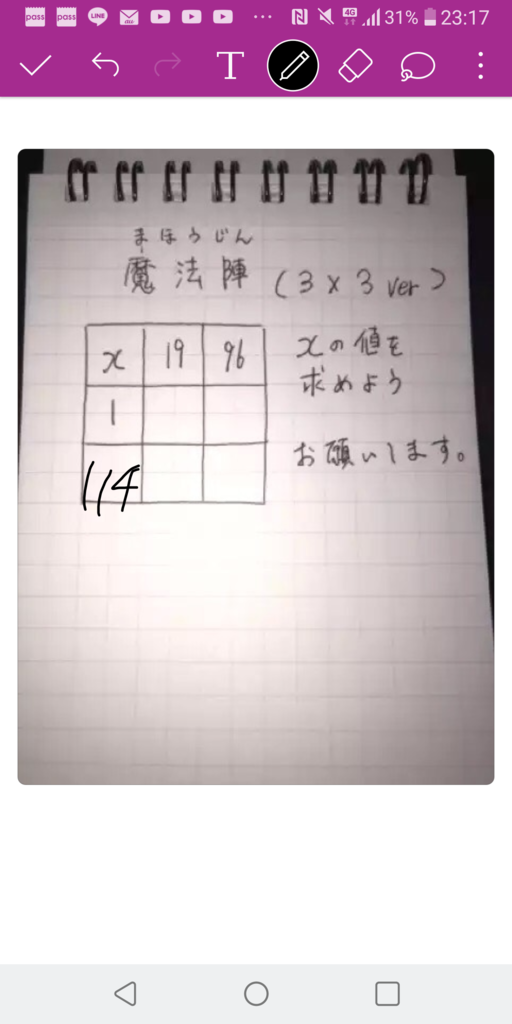 pass pass LINE 4G 31% 23:17
T
まほうじん
魔法陣 (3×3 ver)
x 19 96
xの値を
求めよう
1
お願いします。
114